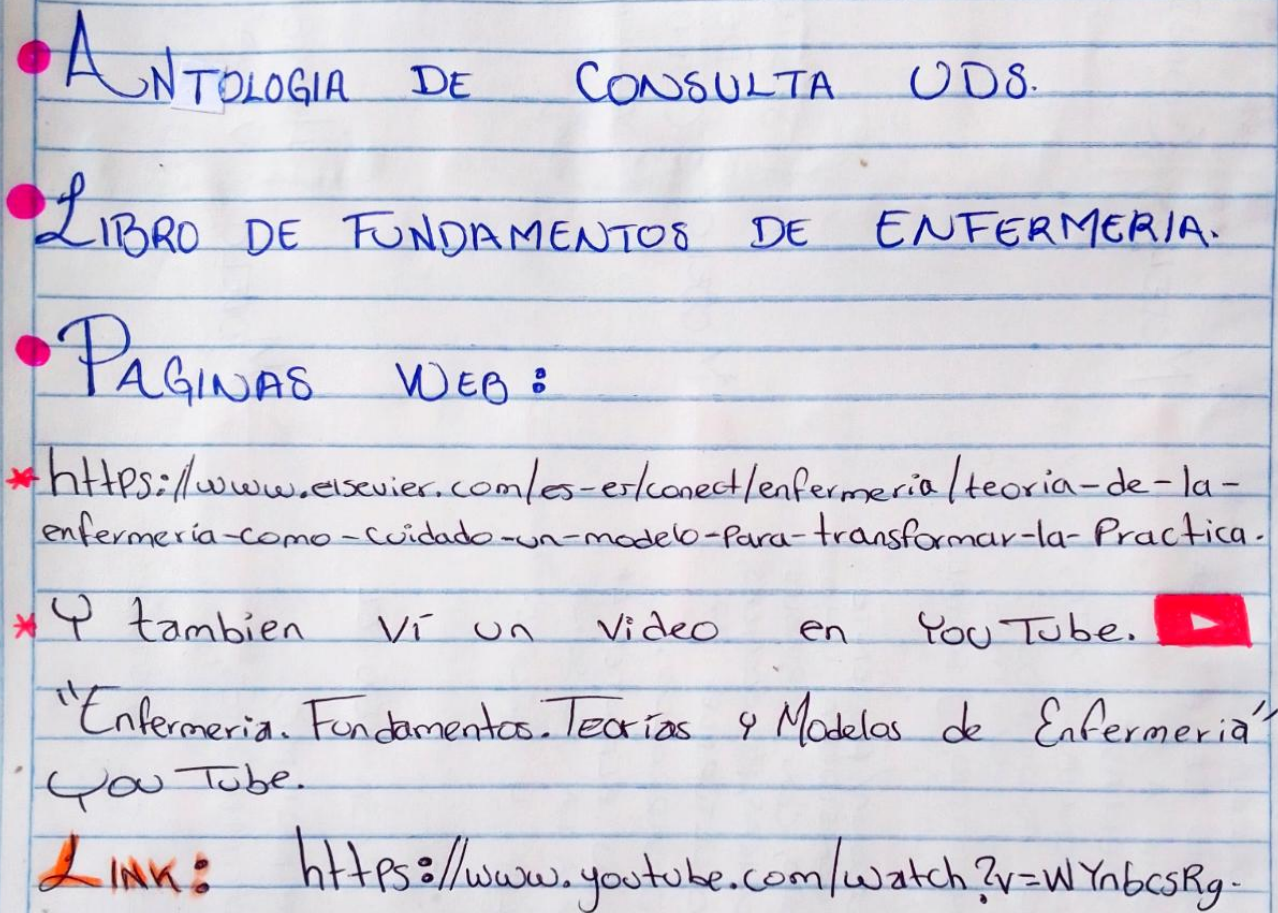 ANTOLOGIA DE CONSULTA UDS.
LIBRO DE FUNDAMENTOS DE ENFERMERIA.
PAGINAS WEB:
https://www.elsevier.com/es-es/conect/enfermeria/teoria-de-la-
enfermeria-como-cuidado-un-modelo-para-transformar-la-Practica.
Y tambien ví un video en YouTube.
"Enfermeria. Fundamentos. Teorías y Modelos de Enfermeria"
YouTube.
LINK: https://www.youtube.com/watch?v=WYnbcsRg-